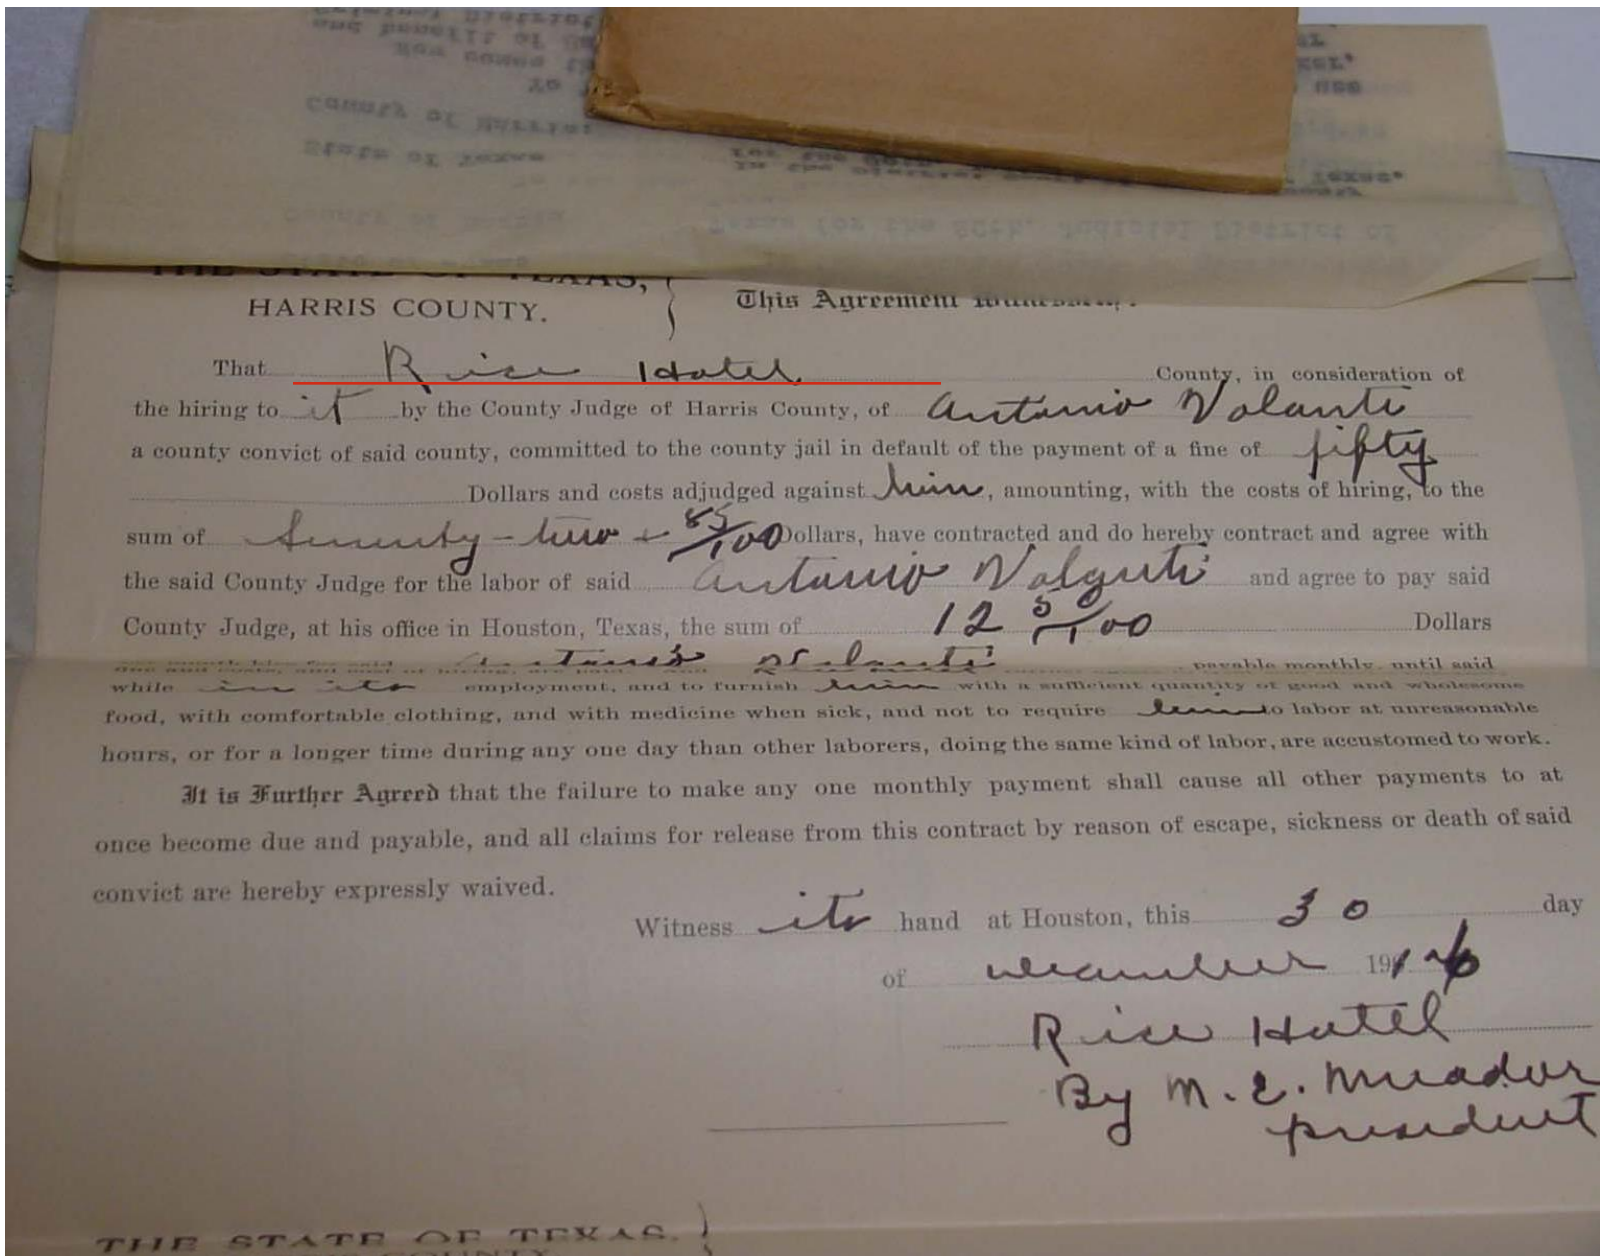 County of Harris.
State of Texas
County of Harris
Texas for the 80th. Judicial District of
THE STATE OF TEXAS,
HARRIS COUNTY.
This Agreement Witnesseth:
That Rice Hotel County, in consideration of
the hiring to it by the County Judge of Harris County, of Antonio Volanti
a county convict of said county, committed to the county jail in default of the payment of a fine of fifty
Dollars and costs adjudged against him, amounting, with the costs of hiring, to the
sum of Seventy-two + 85/100 Dollars, have contracted and do hereby contract and agree with
the said County Judge for the labor of said Antonio Volanti and agree to pay said
County Judge, at his office in Houston, Texas, the sum of 12 50/100 Dollars
Antonio Volanti payable monthly, until said
while in its employment, and to furnish him with a sufficient quantity of good and wholesome
food, with comfortable clothing, and with medicine when sick, and not to require him to labor at unreasonable
hours, or for a longer time during any one day than other laborers, doing the same kind of labor, are accustomed to work.
It is Further Agreed that the failure to make any one monthly payment shall cause all other payments to at
once become due and payable, and all claims for release from this contract by reason of escape, sickness or death of said
convict are hereby expressly waived.
Witness its hand at Houston, this 30 day
of December 1916
Rice Hotel
By M. E. Meador
president
THE STATE OF TEXAS,